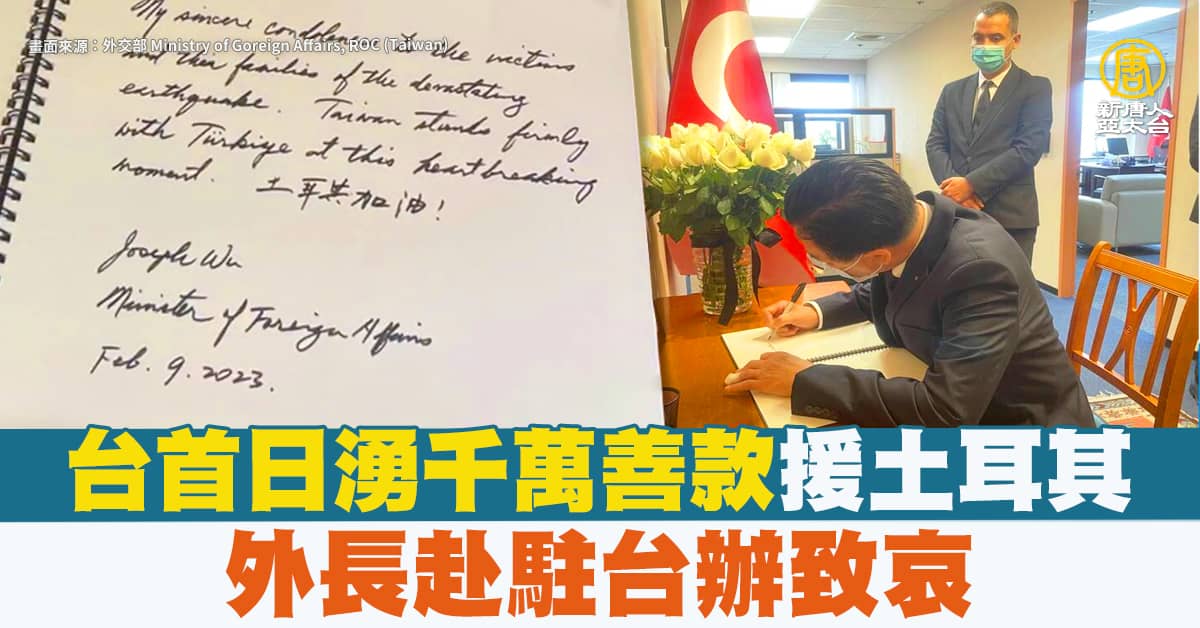 My sincere condolences to the victims
畫面來源：外交部 Ministry of Goreign Affairs, ROC (Taiwan)
and their families of the devastating
earthquake. Taiwan stands firmly
with Türkiye at this heartbreaking
moment. 土耳其加油!
Joseph Wu
Minister of Foreign Affairs
Feb. 9. 2023.
唐
新唐人
亞太台
台首日湧千萬善款援土耳其
外長赴駐台辦致哀